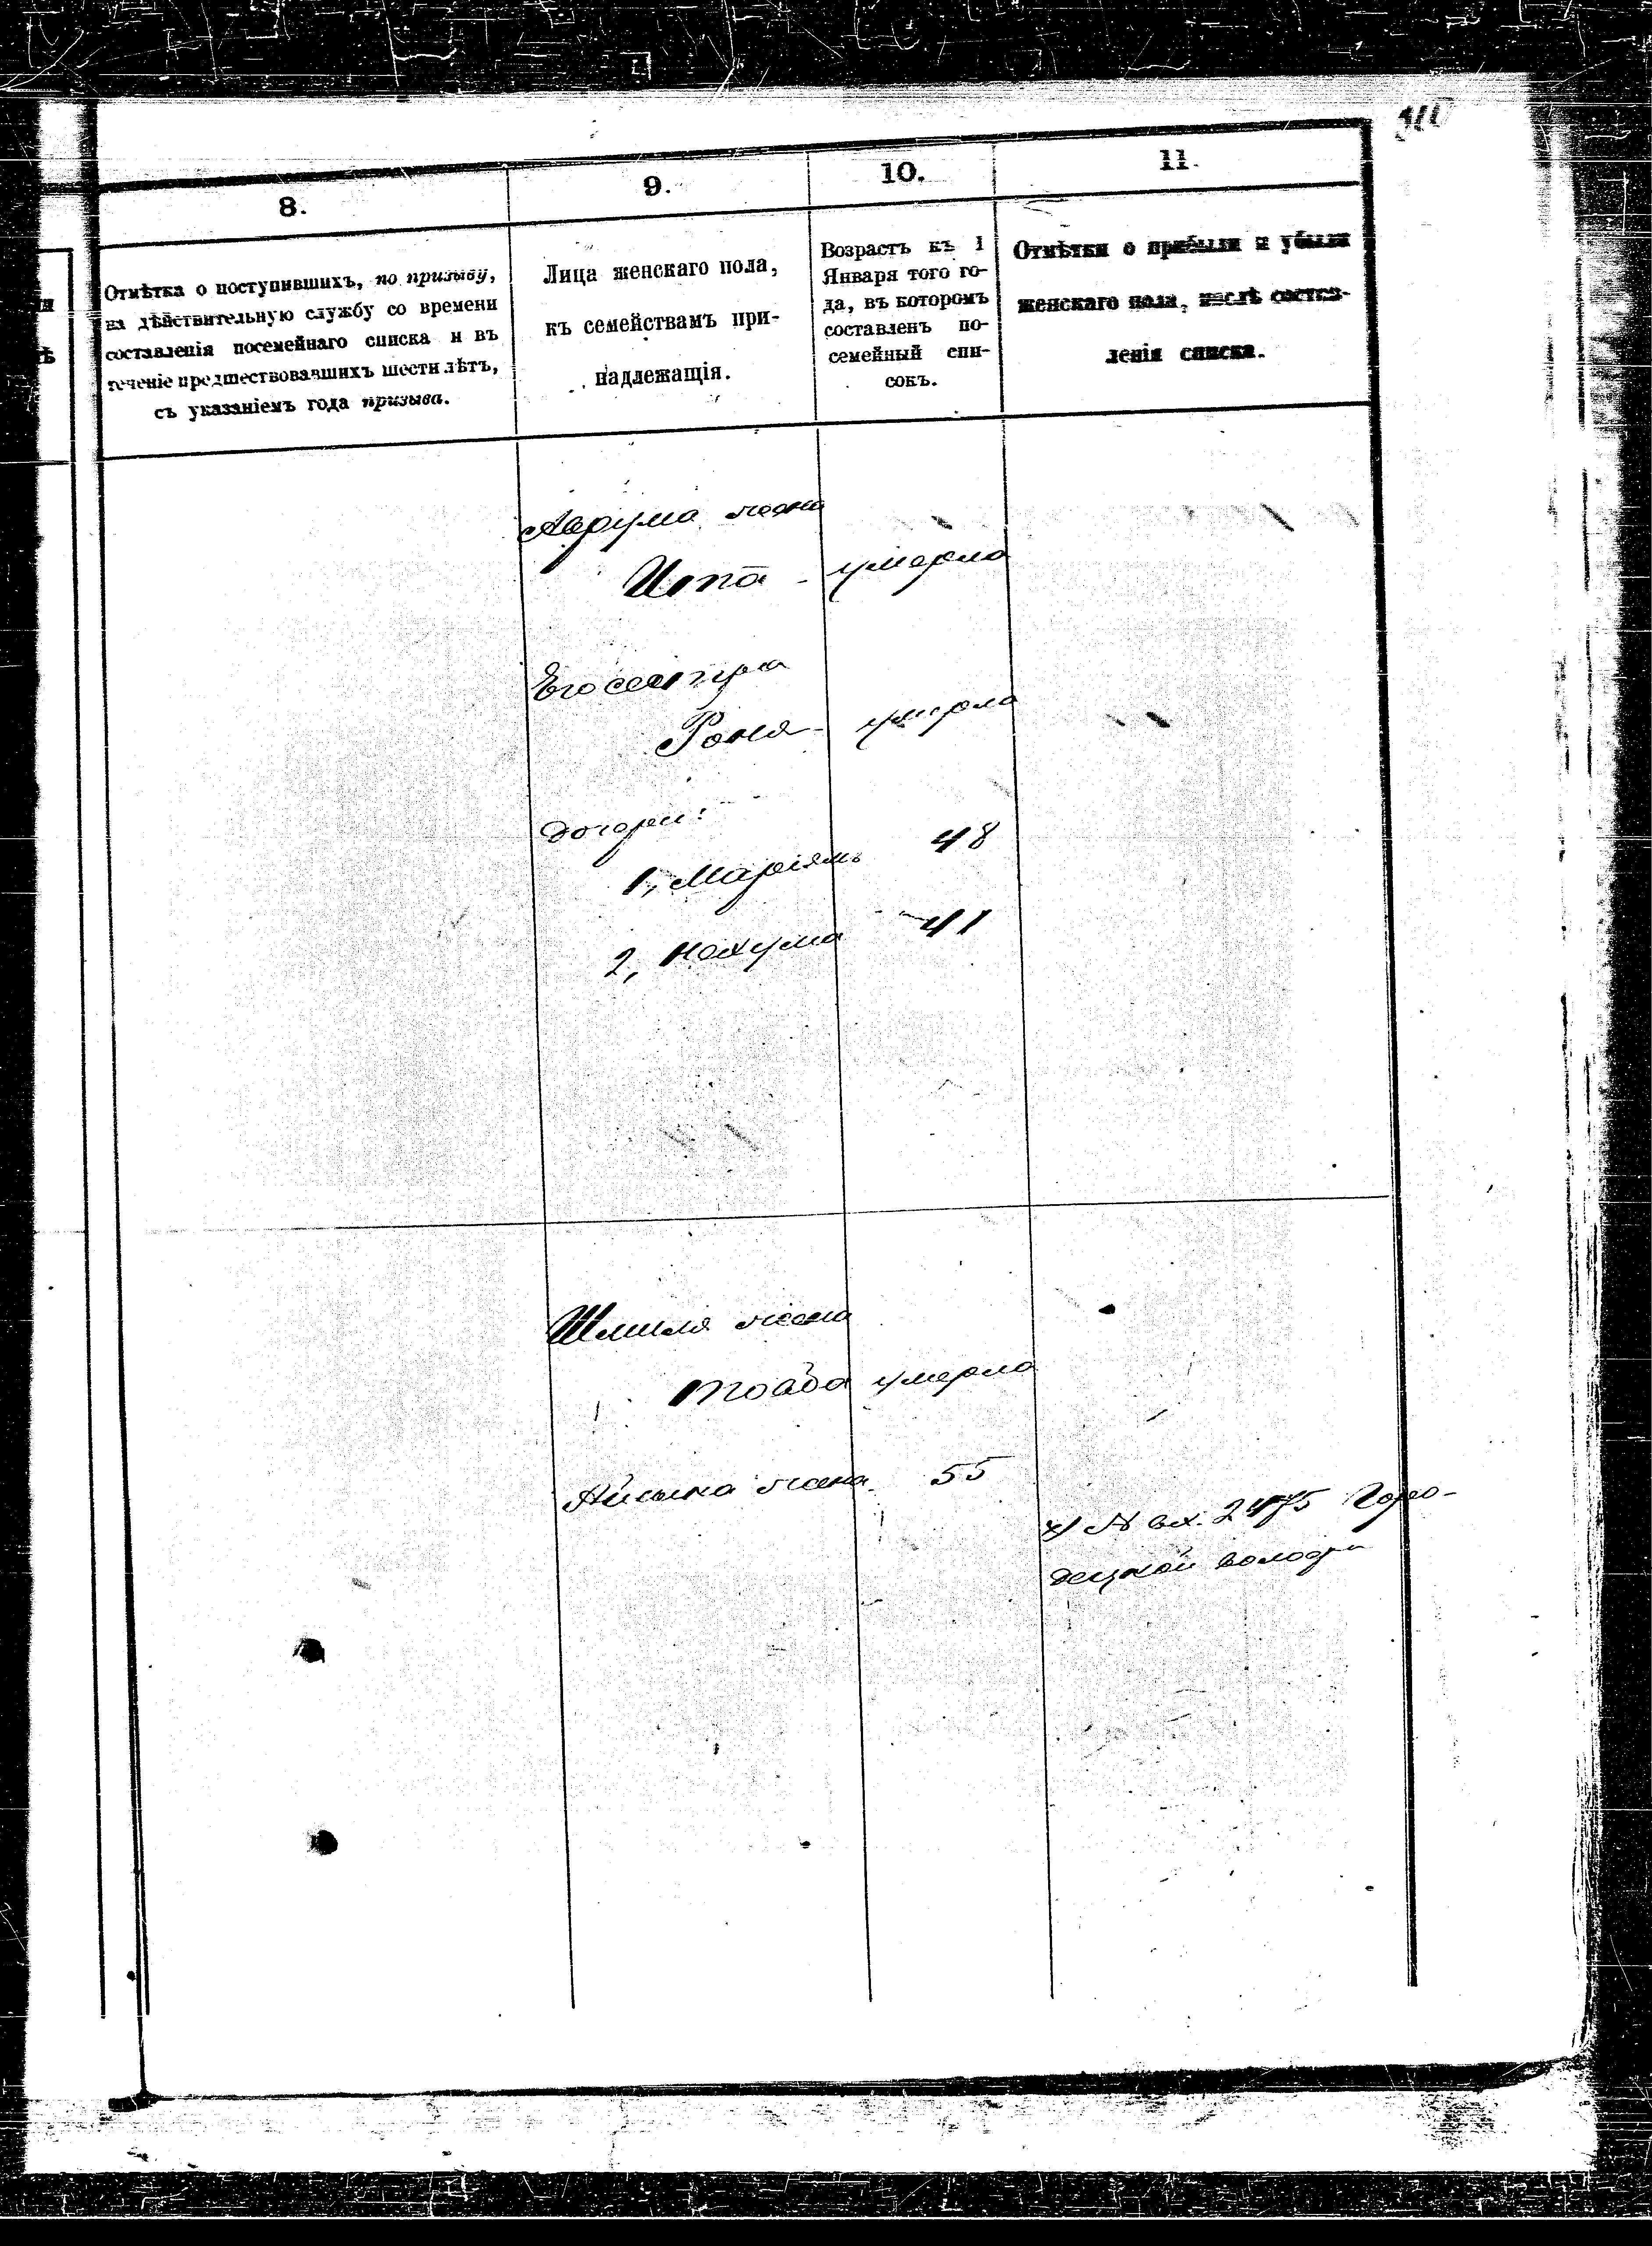 8.
9.
10.
11.
Отмѣтка о поступившихъ, по призыву,
на дѣйствительную службу со времени
составленія посемейнаго списка и въ
теченіе предшествовавшихъ шести лѣтъ,
съ указаніемъ года призыва.
Лица женскаго пола,
къ семействамъ при-
надлежащія.
Возрастъ къ 1
Января того го-
да, въ которомъ
составленъ по-
семейный спи-
сокъ.
Отмѣтки о прибыли и убыли
женскаго пола, послѣ состав-
ленія списка.
Аврума жена
Ипа - умерла
Его сестра
Роня - умерла
Дочери:
1, Маріямъ 48
2, Нехума 41
Шмиля жена
умерла
жена 55
х) № вх. 2475 Горо-
децкой волости